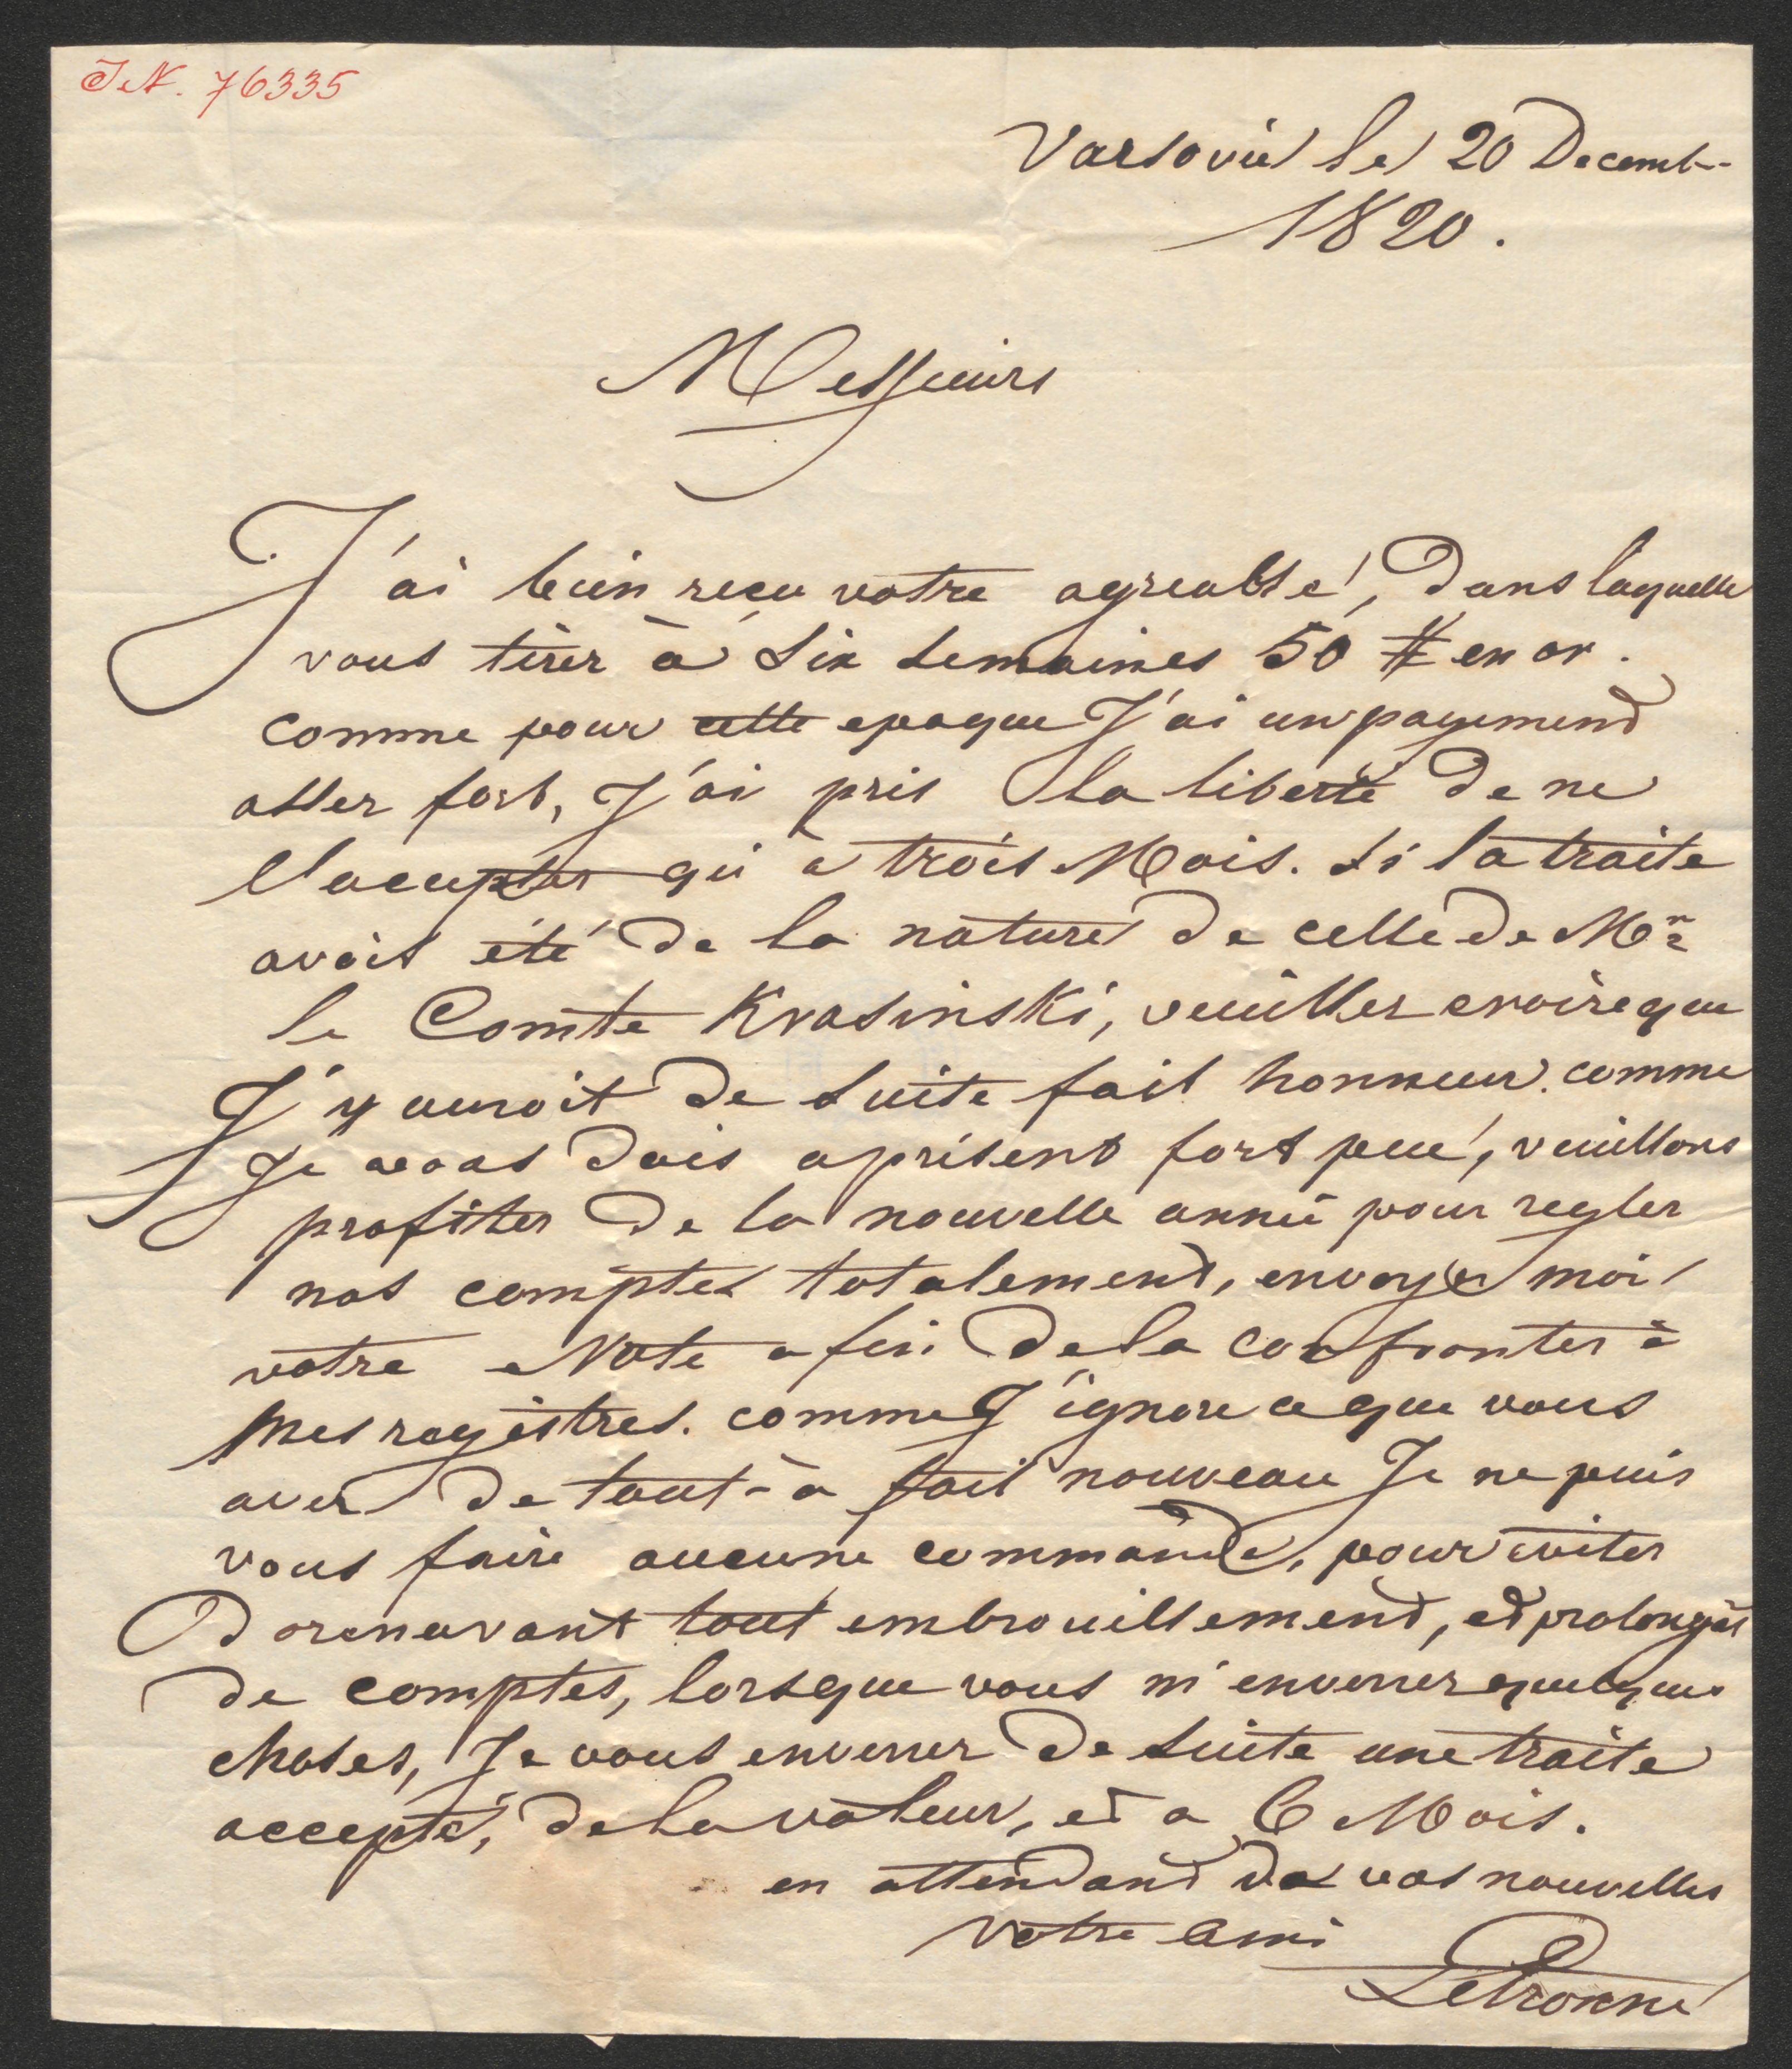 J.N. 76335
Varsovie le 20 Decemb--
1820.
Messieurs
J'ai bien recu votre agreable, dans laquelle
vous tirer à six semaines 50 # en or.
comme pour cette epoque J'ai un payemend
asser fort, J'ai pris la liberté de ne
l'accepter qu'à trois Mois. si la traite
avoit été de la nature de celle de Mr
le Comte Krasinski, veuiller croire que
J'y auroit de suite fait honneur. comme
Je vous dois aprisent fort peu, veuillons
profiter de la nouvelle année pour regler
nos comptes totalemend, envoyer moi
votre Note afin de la confronter à
mes registres. comme J'ignore ce que vous
aver de tout-à fait nouveau Je ne puis
vous faire aucune commande, pour eviter
Dorenavant tout embrouillemend, ed prolongat
de comptes, lorsque vous m'enverrer quelques
choses, Je vous enverrer de suite une traite
accepté, de la valeur, ed a 6 Mois.
en attendand de vos nouvelles
votre ami
Letronne